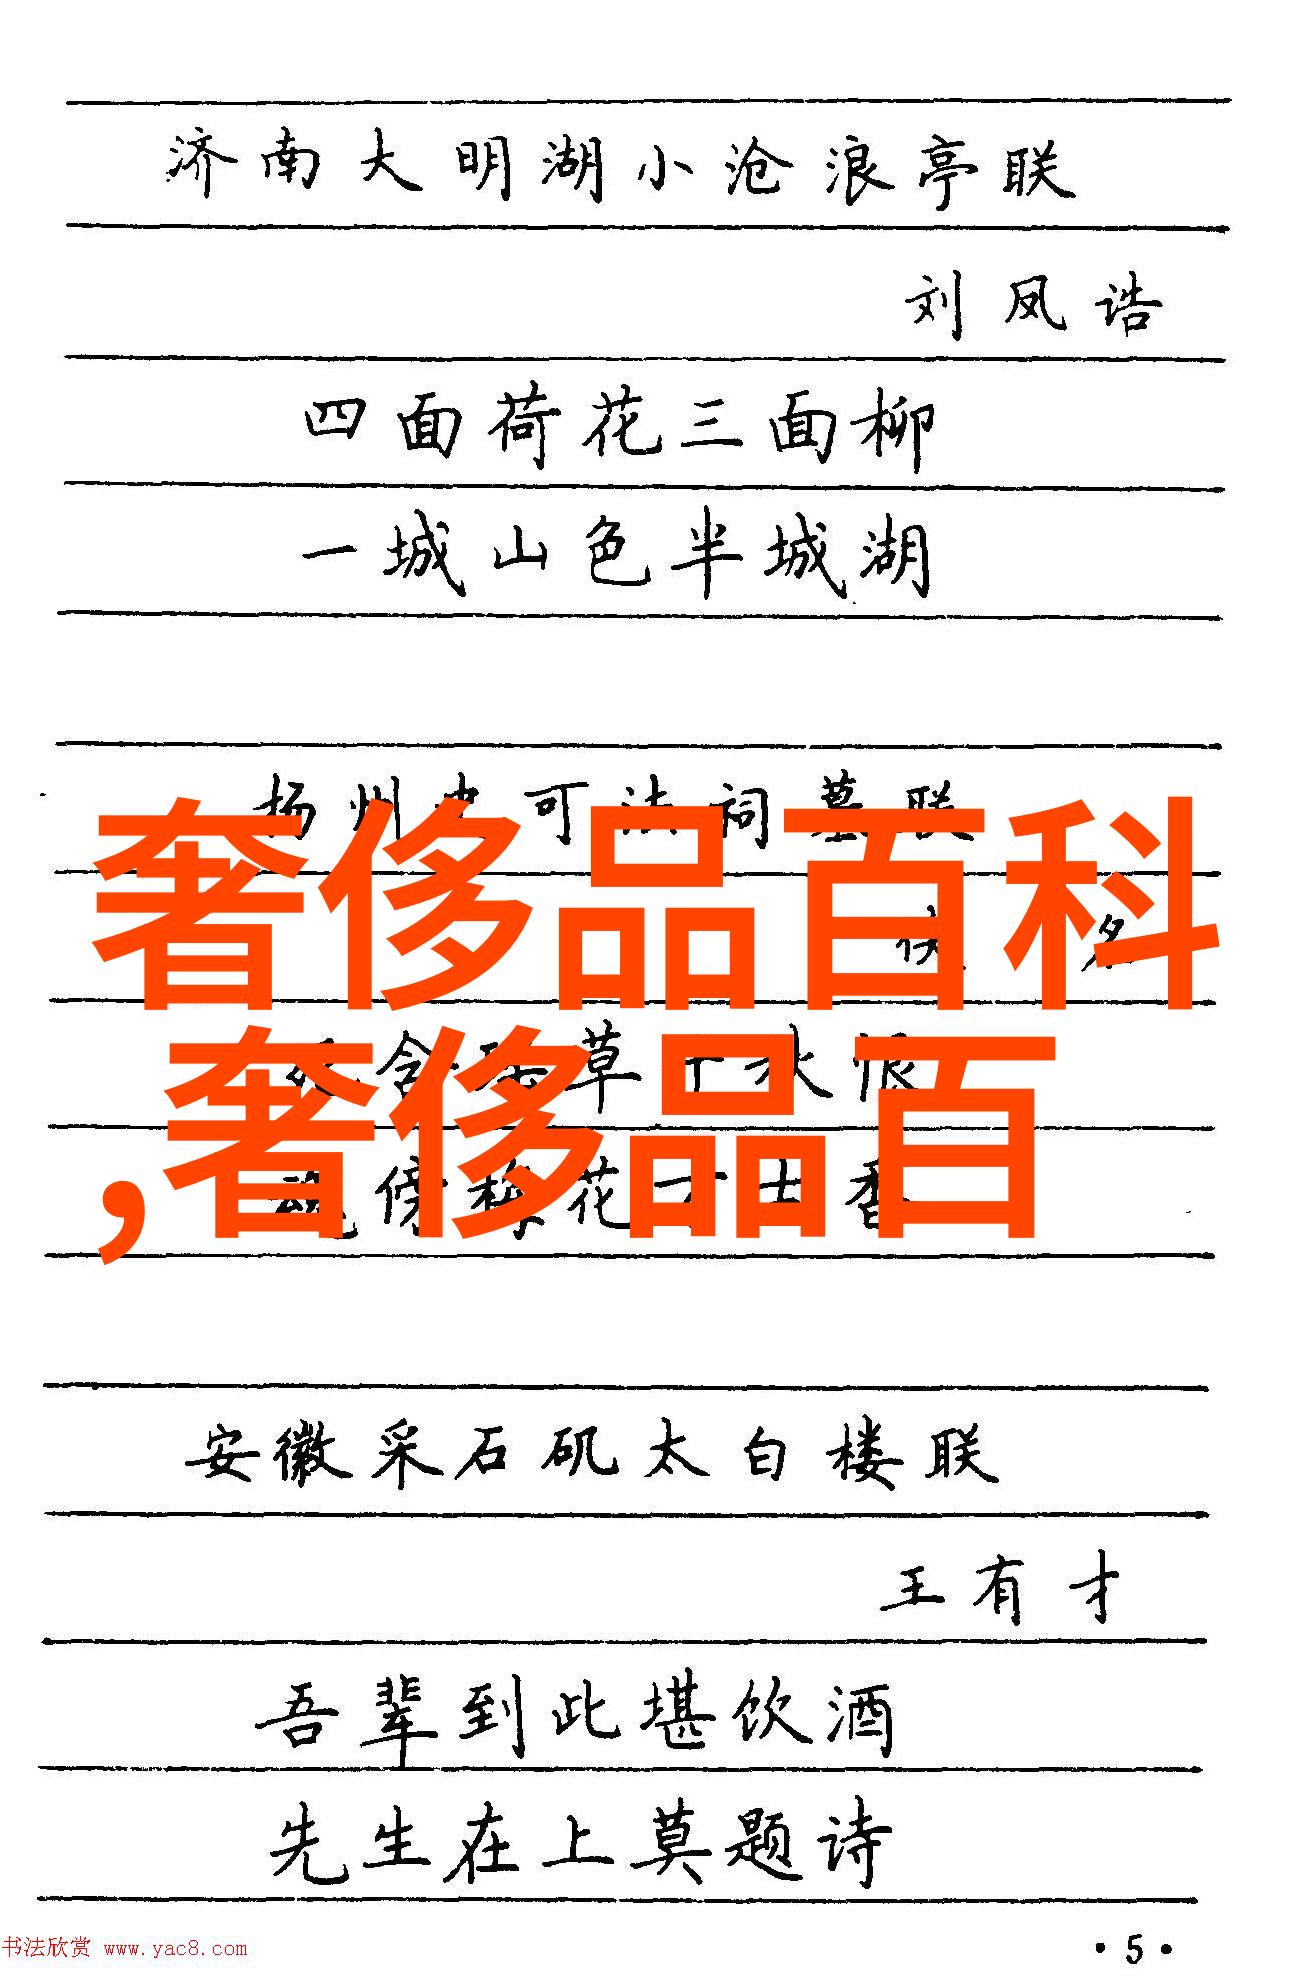 济南大明湖小沧浪亭联
刘凤诰
四面荷花三面柳
一城山色半城湖
扬州史可法祠墓联
奢侈品百科
名
含草恨
,奢侈品百
傍梅花香
安徽采石矶太白楼联
王有才
吾辈到此堪饮酒
先生在上莫题诗
书法欣赏 www.yac8.com
·5·